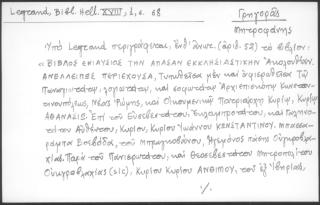 Legrand, Bibl. Hell. XVIII, 1, σ. 68
Γρηγορᾶς
Μητροφάνης
Ὑπὸ Legrand περιγράφεται, ἐνθ' ἀνωτ. (ἀριθ. 52) τὸ βιβλίον:
« ΒΙΒΛΟΣ ΕΝΙΑΥΣΙΟΣ ΤΗΝ ΑΠΑΣΑΝ ΕΚΚΛΗΣΙΑΣΤΙΚΗΝ Ἀκολουθίαν
ΑΝΕΛΛΕΙΠΩΣ ΠΕΡΙΕΧΟΥΣΑ, Τυπωθεῖσα μὲν καὶ ἀφιερωθεῖσα Τῷ
Παναγιωτάτῳ, λογιωτάτῳ, καὶ σοφωτάτῳ Ἀρχιεπισκόπῳ Κωνσταν-
τινουπόλεως, Νέας Ῥώμης, καὶ Οἰκουμενικῷ Πατριάρχῃ Κυρίῳ, Κυρίῳ
ΑΘΑΝΑΣΙῼ. Ἐπὶ τοῦ Εὐσεβεστάτου, Ἐκλαμπροτάτου, καὶ Γαληνο-
τάτου Αὐθέντου, Κυρίου, Κυρίου Ἰωάννου ΚΩΝΣΤΑΝΤΙΝΟΥ, Μπασσα-
ράμπα Βοεβόδα, τοῦ Μπραγκοβάνου, Ἡγεμόνος πάσης Οὑγκροβλα-
χίας. Παρὰ τοῦ Πανιερωτάτου, καὶ Θεοσεβεστάτου Μητροπολίτου
Οὑγκροβλαχίας (sic), Κυρίου Κυρίου ΑΝΘΙΜΟΥ, τοῦ ἐξ Ἰβηρίας,
./.